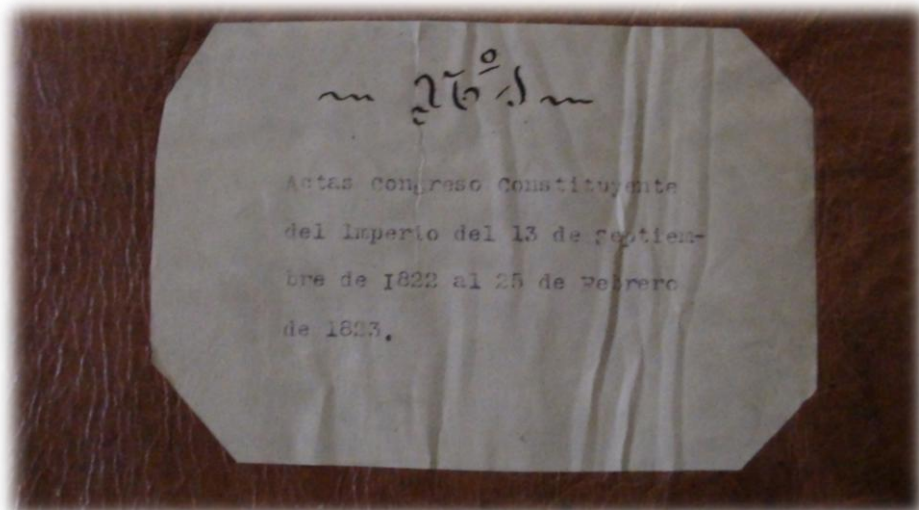 Actas Congreso Constituyente
del Imperio del 13 de Septiem-
bre de I822 al 25 de Febrero
de 1823.